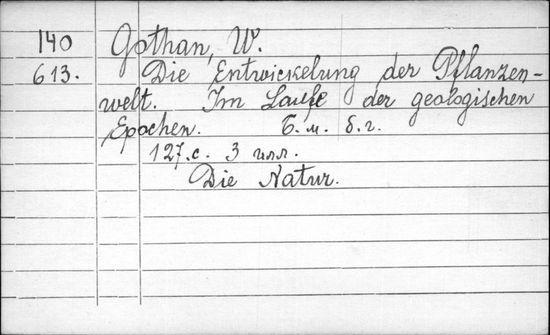 140 Gothan, W.
613. Die Entwickelung der Pflanzen-
welt. Im Laufe der geologischen
Epochen. Б. м. б. г.
127. с. 3 илл.
Die Natur.